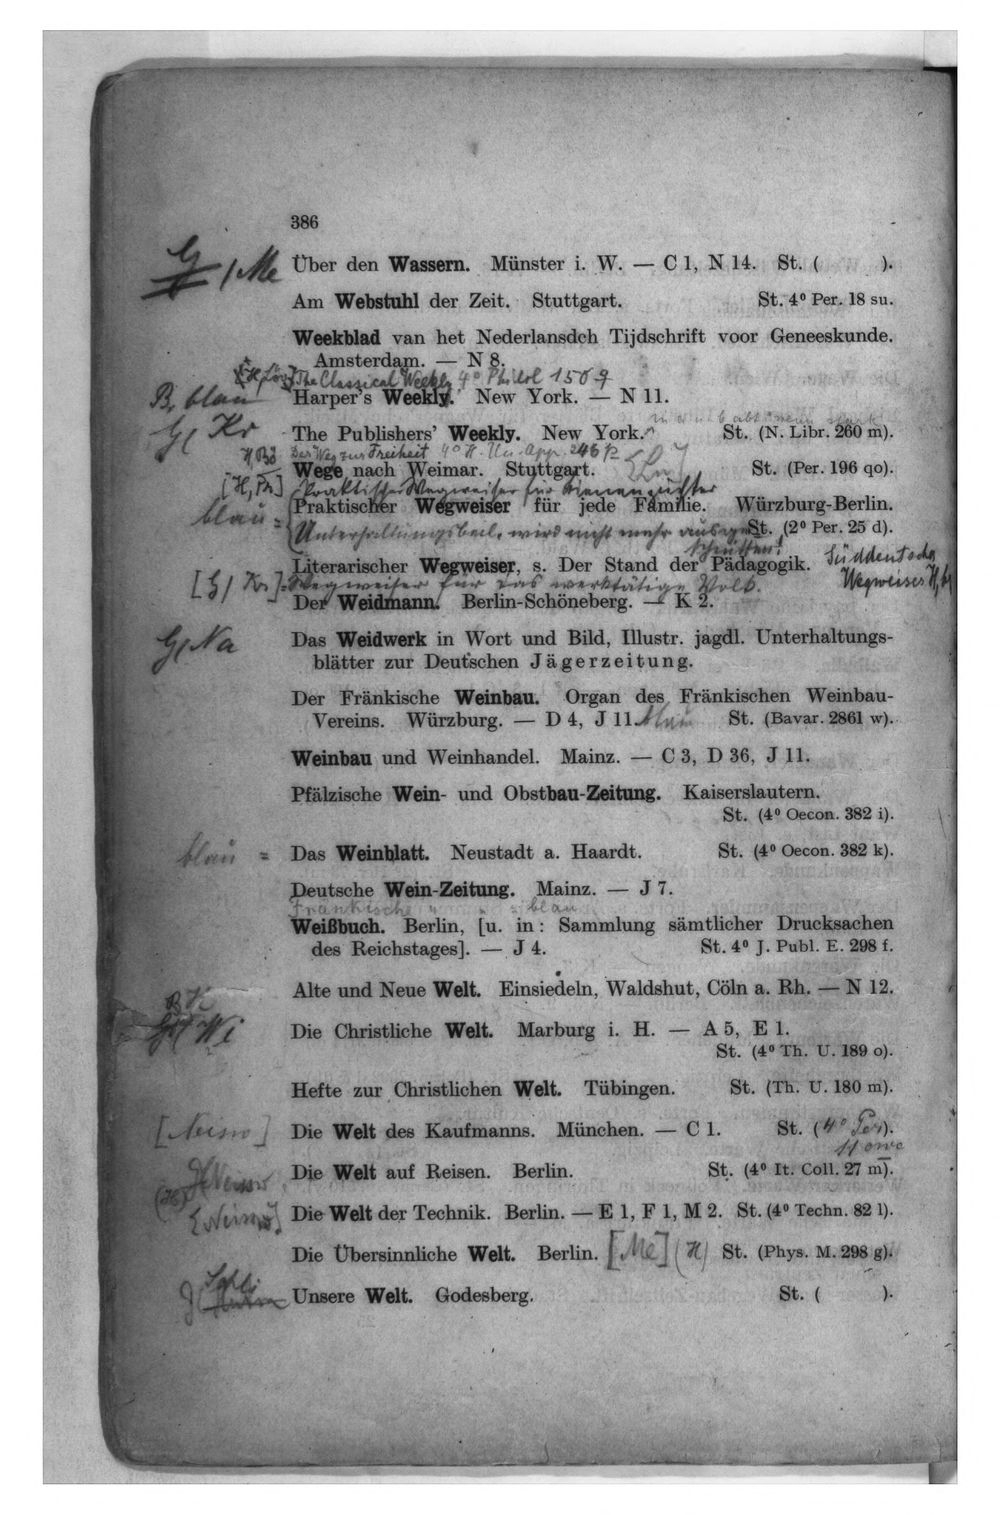 386
G / Me Über den Wassern. Münster i. W. — C 1, N 14. St. ( ).
Am Webstuhl der Zeit. Stuttgart. St. 4⁰ Per. 18 su.
Weekblad van het Nederlansdch Tijdschrift voor Geneeskunde.
Amsterdam. — N 8.
The Classical Weekly 4⁰ Philol 1509
B, blau Harper's Weekly. New York. — N 11.
G/ Kr The Publishers' Weekly. New York. St. (N. Libr. 260 m).
Der Weg zur Freiheit 4⁰ H. Un. App. 246
Wege nach Weimar. Stuttgart. St. (Per. 196 qo).
Praktischer Wegweiser für Bienenzüchter
blau = Praktischer Wegweiser für jede Familie. Würzburg-Berlin.
Unterhaltungsbeil. wird nicht mehr St. (2⁰ Per. 25 d).
Literarischer Wegweiser, s. Der Stand der Pädagogik. Süddeutscher
Wegweiser
[G/ Kr] Wegweiser für das werktätige Volk.
Der Weidmann. Berlin-Schöneberg. — K 2.
G/ Na Das Weidwerk in Wort und Bild, Illustr. jagdl. Unterhaltungs-
blätter zur Deutschen Jägerzeitung.
Der Fränkische Weinbau. Organ des Fränkischen Weinbau-
Vereins. Würzburg. — D 4, J 11. blau St. (Bavar. 2861 w).
Weinbau und Weinhandel. Mainz. — C 3, D 36, J 11.
Pfälzische Wein- und Obstbau-Zeitung. Kaiserslautern.
St. (4⁰ Oecon. 382 i).
blau = Das Weinblatt. Neustadt a. Haardt. St. (4⁰ Oecon. 382 k).
Deutsche Wein-Zeitung. Mainz. — J 7.
Fränkische " " = blau
Weißbuch. Berlin, [u. in: Sammlung sämtlicher Drucksachen
des Reichstages]. — J 4. St. 4⁰ J. Publ. E. 298 f.
Alte und Neue Welt. Einsiedeln, Waldshut, Cöln a. Rh. — N 12.
Die Christliche Welt. Marburg i. H. — A 5, E 1.
St. (4⁰ Th. U. 189 o).
Hefte zur Christlichen Welt. Tübingen. St. (Th. U. 180 m).
Die Welt des Kaufmanns. München. — C 1. St. (4⁰ Per).
Die Welt auf Reisen. Berlin. St. (4⁰ It. Coll. 27 m).
Die Welt der Technik. Berlin. — E 1, F 1, M 2. St. (4⁰ Techn. 82 l).
Die Übersinnliche Welt. Berlin. [Me] (H) St. (Phys. M. 298 g).
Unsere Welt. Godesberg. St. ( ).